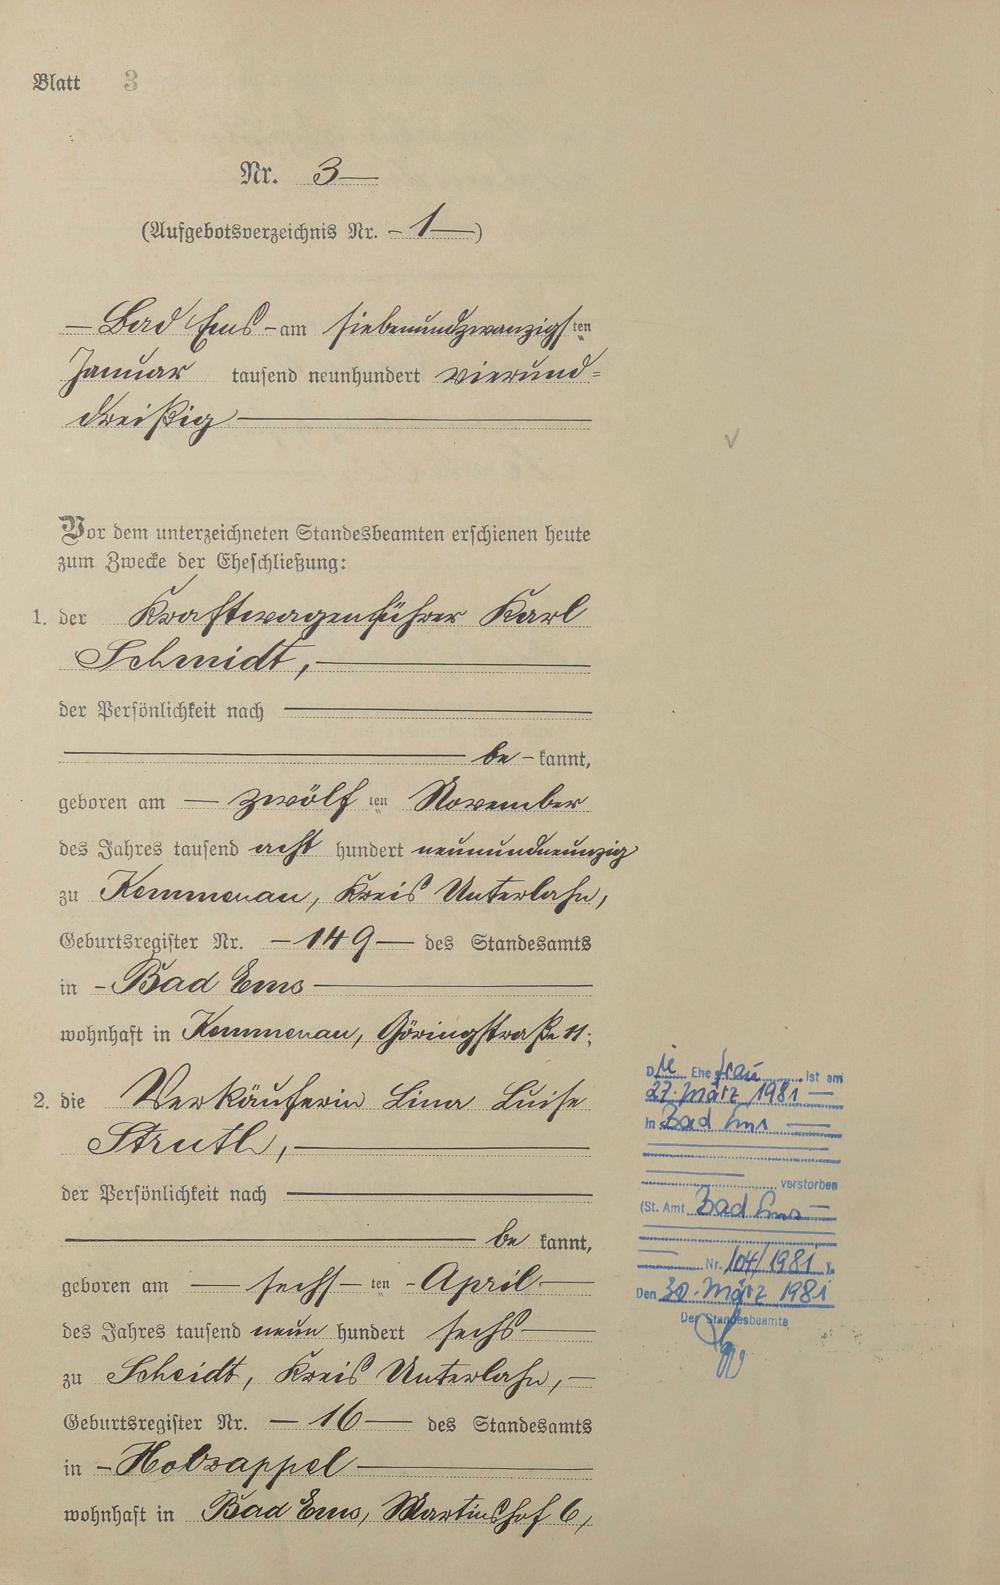 Blatt 3
Nr. 3
(Aufgebotsverzeichnis Nr. 1)
Bad Ems am siebenundzwanzigsten
Januar tausend neunhundert vierund=
dreißig
Vor dem unterzeichneten Standesbeamten erschienen heute
zum Zwecke der Eheschließung:
1. der Kraftwagenführer Karl
Schmidt,
der Persönlichkeit nach
be-kannt,
geboren am zwölften November
des Jahres tausend acht hundert neunundneunzig
zu Kemmenau, Kreis Unterlahn,
Geburtsregister Nr. 149 des Standesamts
in Bad Ems
wohnhaft in Kemmenau, Göringstraße 11;
2. die Verkäuferin Lina Luise
Struth,
der Persönlichkeit nach
be kannt,
geboren am sechsten April
des Jahres tausend neun hundert sechs
zu Scheidt, Kreis Unterlahn,
Geburtsregister Nr. 16 des Standesamts
in Holzappel
wohnhaft in Bad Ems, Martinshof 6,
Die Ehefrau ist am
27. März 1981
in Bad Ems
verstorben
(St. Amt Bad Ems
Nr. 104/1981).
Den 30. März 1981
Der Standesbeamte